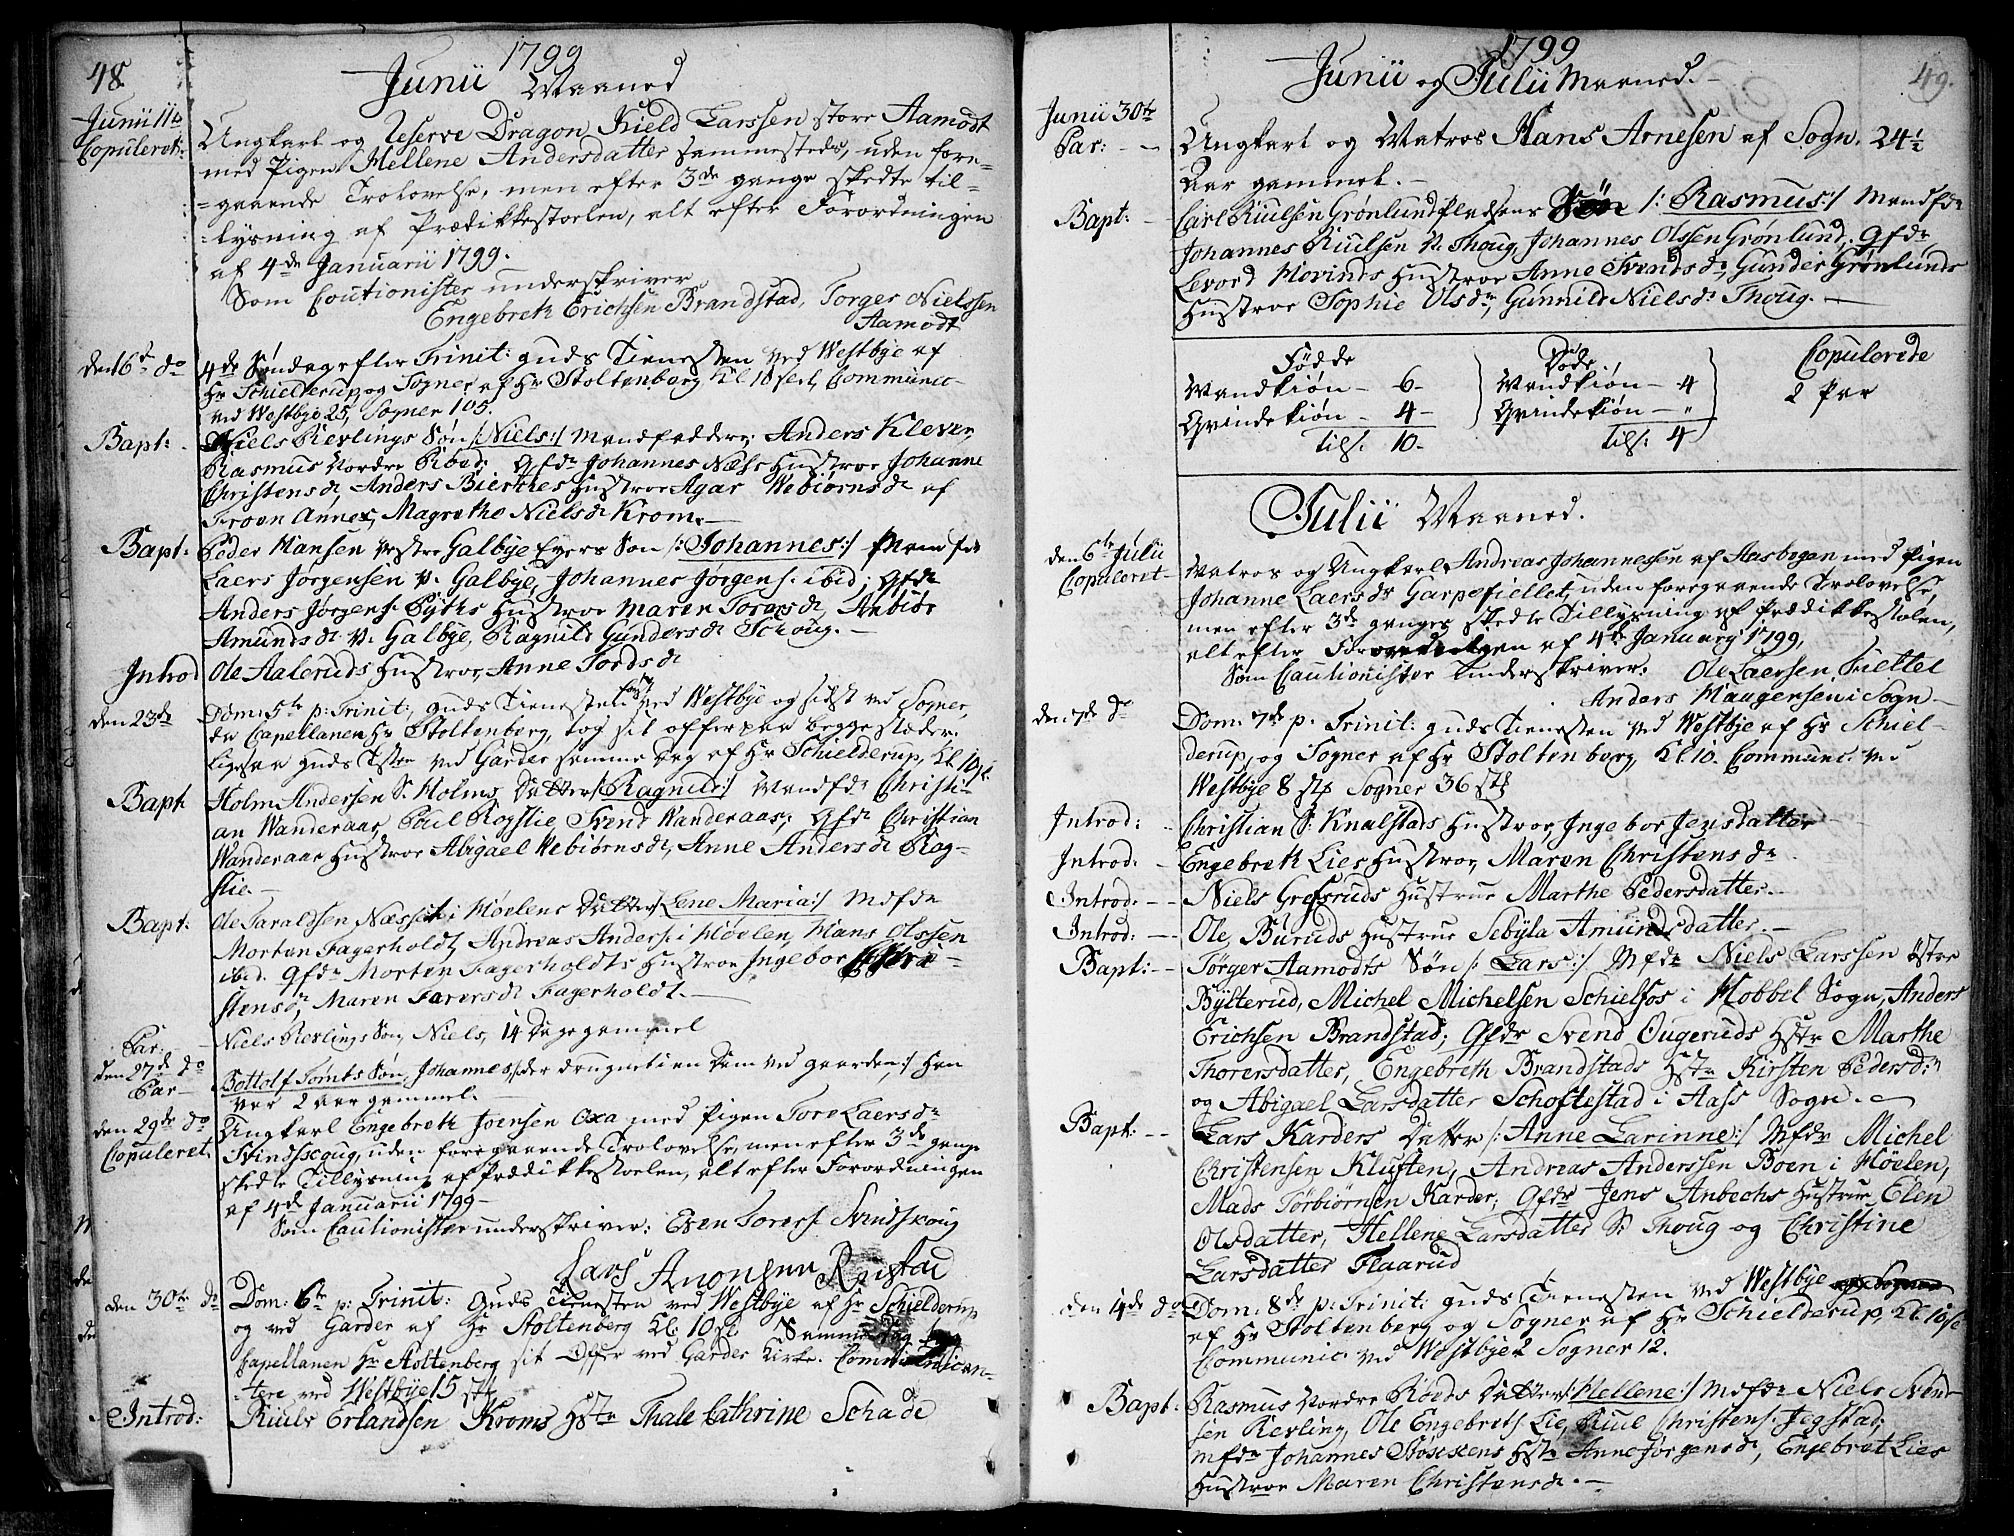 48.
1799
Junii Maaned
Junii 11te
Copuleret:
Ungkarl og Reserve Dragon Kield Larssen store Aamodt
med Pigen Hellene Andersdatter sammesteds, uden fore-
-gaaende Trolovelse, men efter 3de gange skedte til-
-lysning af Prædikkestoelen, alt efter Forordningen
af 4de Januarii 1799.
Som Cautionister underskriver
Engebreth Erichsen Brandstad, Torger Nielssen
Aamodt
den 16de do
4de Søndag efter Trinit: guds Tienesten ved Westbye af
Hr Schielderup, og Sogner af Hr Stoltenberg Kl. 10 Communic-
ved Westbye 25, Sogner 105.
Bapt:
Niels Kevlings Søn /:Niels:/ Mandfaddere: Anders Klever,
Rasmus Nordre Røed; Qfdr Johannes Næss Hustroe Johanne
Christensdr, Anders Bierkes Hustroe Agar Webiørnsdr af
Froen Annex, Magrethe Nielsdr Krom.
Bapt:
Peder Hansen vestre Galbye Eyers Søn /:Johannes:/ Mandfdr
Laers Jørgensen V. Galbye, Johannes Jørgens: ibid; Qfdr
Anders Jørgens: Pytts Hustroe Maren Torersdr, Anbiør
Amundsdr V. Galbye, Ragnild Gundersdr Schoug.
Introd
Ole Aaleruds Hustroe, Anne Tordsdr
den 23de
Dom: 5te p: Trinit: guds Tienesten først ved Westbye og sidst ved Sogner,
da Capellanen Hr Stoltenberg, tog sit offer paa begge stæder.
Ligesaa Guds Tsten ved Garder samme dag af Hr Schielderup, Kl. 10
Bapt
Holm Andersen S. Holms Datter /:Ragnild:/ Mandfdr Christi-
an Wanderaas, Poul Rogslie, Svend Wanderaas; Qfdr Christian
Wanderaas Hustroe Abigael Webiørnsdr, Anne Andersdr Rog-
slie.
Bapt:
Ole Taraldsen Næsset i Høelens Datter /:Lene Maria:/ Mfdr
Morten Fagerholdt, Andreas Anders: i Høelen, Hans Olssen
ibid. Qfdr Morten Fagerholdts Hustroe Ingebor Chri-
stensdr, Maren Torersdr Fagerholdt.
Par:
Niels Kevlings Søn, Niels, 14 Dage gammel
den 27de do
Par
Bottolf Tomts Søn, Johannes, /:der drugnet i en Dam ved gaarden:/ han
var 2 aar gammel.
den 29de do
Copuleret.
Ungkarl Engebreth Joensen Oxa med Pigen Tore Laersdr
Svindskoug, uden foregaaende Trolovelse, men efter 3de gange
skedte Tillysning af Prædikkestoelen, alt efter Forordningen
af 4de Januarii 1799
Som Cautionister underskriver: Even Torers: Svindskoug
Lars Anonsen Rustad
den 30te do
Dom: 6te p: Trinit: Guds Tienesten ved Westbye af Hr Schielderup
og ved Garder af Hr Stoltenberg Kl: 10 Samme Dag tog
Capellanen Hr Stoltenberg sit Offer ved Garder Kirke. Communican-
-tere ved Westbye 15 stk
Introd:
Riulr Erlandsen Kroms Hstr Thale Cathrine Schade
49.
1799
Junii og Julii Maaned.
Junii 30te
Par:
Ungkarl og Matros Hans Arnesen af Sogn, 24½
Aar gammel.
Bapt:
Carl Riulsen Grønlundpladsens Søn /:Rasmus:/ Mandfdr
Johannes Riulsen N. Thoug, Johannes Olssen Grønlund; Qfdr
Levord Hovinds Hustroe Anne Svendsdr, Gunder Grønlunds
Hustroe Sophie Olsdr, Gunnild Nielsdr Thoug.
Fødde Døde Copulerede
Mandkiøn - 6- Mandkiøn - 4 2 Par
Qvindekiøn - 4- Qvindekiøn - "
Tils: 10- Tils: 4
Julii Maaned.
den 6te Julii
Copuleret
Matros og Ungkarl Andreas Johannessen af Aasbogen med Pigen
Johanne Laersdr Garpefiellet, uden foregaaende Trolovelse,
men efter 3de ganges skedte Tillysning af Prædikkestolen,
alt efter Forordningen af 4de January 1799,
Som Cautionister Underskriver: Ole Laersen Fieltet
Anders Haagensen i Sogn
den 7de do
Dom: 7de p. Trinit: guds Tienesten ved Westbye af Hr Schiel-
derup, og Sogner af Hr Stoltenberg, Kl. 10. Communic. ved
Westbye 8 stk Sogner 36 stk
Introd:
Christian S. Knalstads Hustroe Ingebor Jensdatter
Introd:
Engebreth Lies Hustroe, Maren Christensdr
Introd:
Niels Gressruds Hustrue Marthe Pedersdatter.
Introd:
Ole Buruds Hustrue Sebylla Amundsdatter.
Bapt:
Törger Aamodts Søn /:Lars:/ Mfdr Niels Larssen östre
Bylterud, Michel Michelsen Schielfos i Hobbel Sogn, Anders
Erichsen Brandstad; Qfdr Svend Ougeruds Hstr Marthe
Thorersdatter, Engebreth Brandstads Hstr Kirsten Pedersdr
og Abigael Larsdatter Schoftestad i Aass Sogn.
Bapt:
Lars Karders Datter /:Anne Larinne:/ Mfdr Michel
Christensen Kluften, Andreas Anderssen Boen i Høelen,
Mads Törbiörnsen Karder; Qfdr Jens Anbechs Hustrue Elen
Olsdatter, Hellene Larsdatter S: Thoug og Christine
Larsdatter Flaarud
den 14de do
Dom: 8de p: Trinit: guds Tienesten ved Westbye
af Hr Stoltenberg og Sogner af Hr Schielderup, Kl. 10
Communic: ved Westbye 2 Sogner 12.
Bapt:
Rasmus Nordre Røeds Datter /:Hellene:/ Mfdr Niels Svend-
sen Kevling, Ole Engebreths: Lie, Riul Christens: Jegstad;
Mfdr Johannes Stosskens Hstr Anne Jørgensdr, Engebret Lies
Hustroe Maren Christensdr.